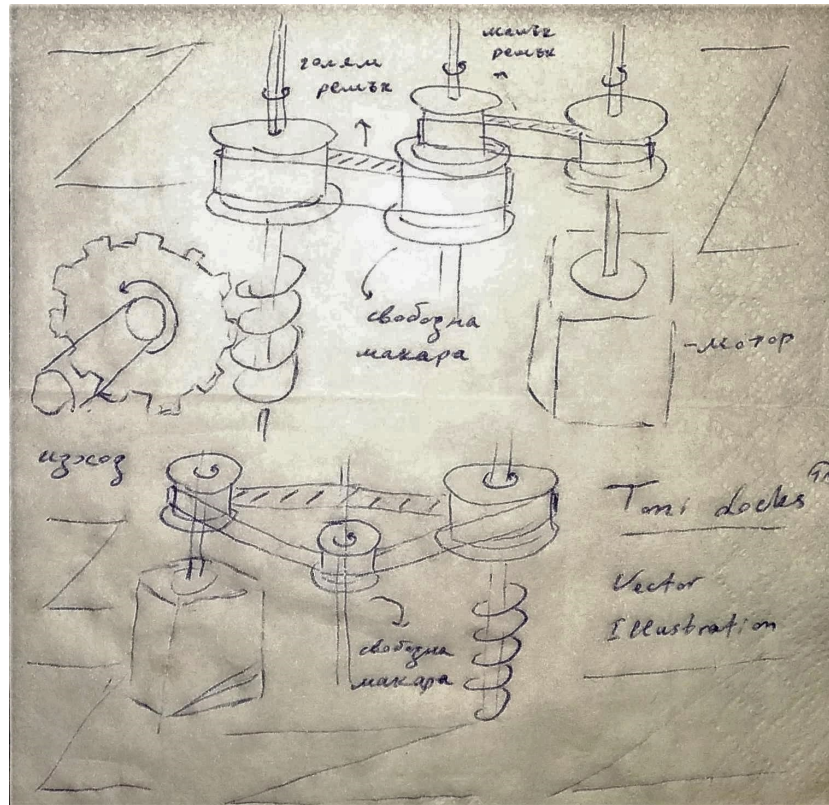 голям
ремък
малък
ремък
свободна
макара
-мотор
изход
Toni Locks
Vector
Illustration
свободна
макара